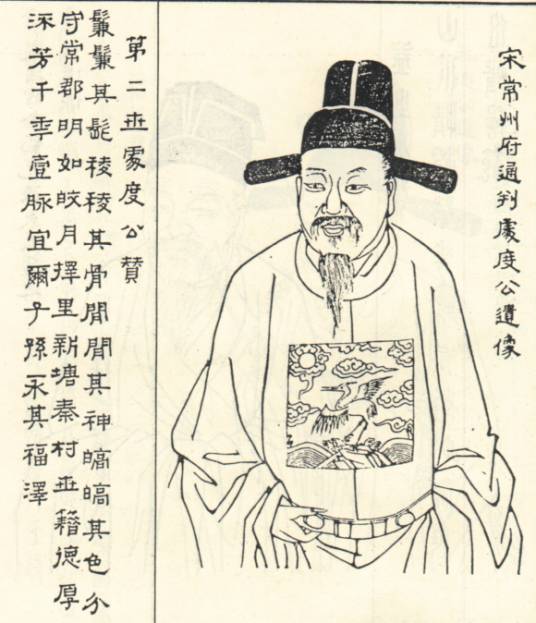 宋常州府通判處度公遺像
第二世處度公贊
鬑鬑其髭稜稜其骨閒閒其神皜皜其色分
守常郡明如皎月擇里新塘秦村世籍德厚
流芳千季壹脉宜爾子孫永其福澤